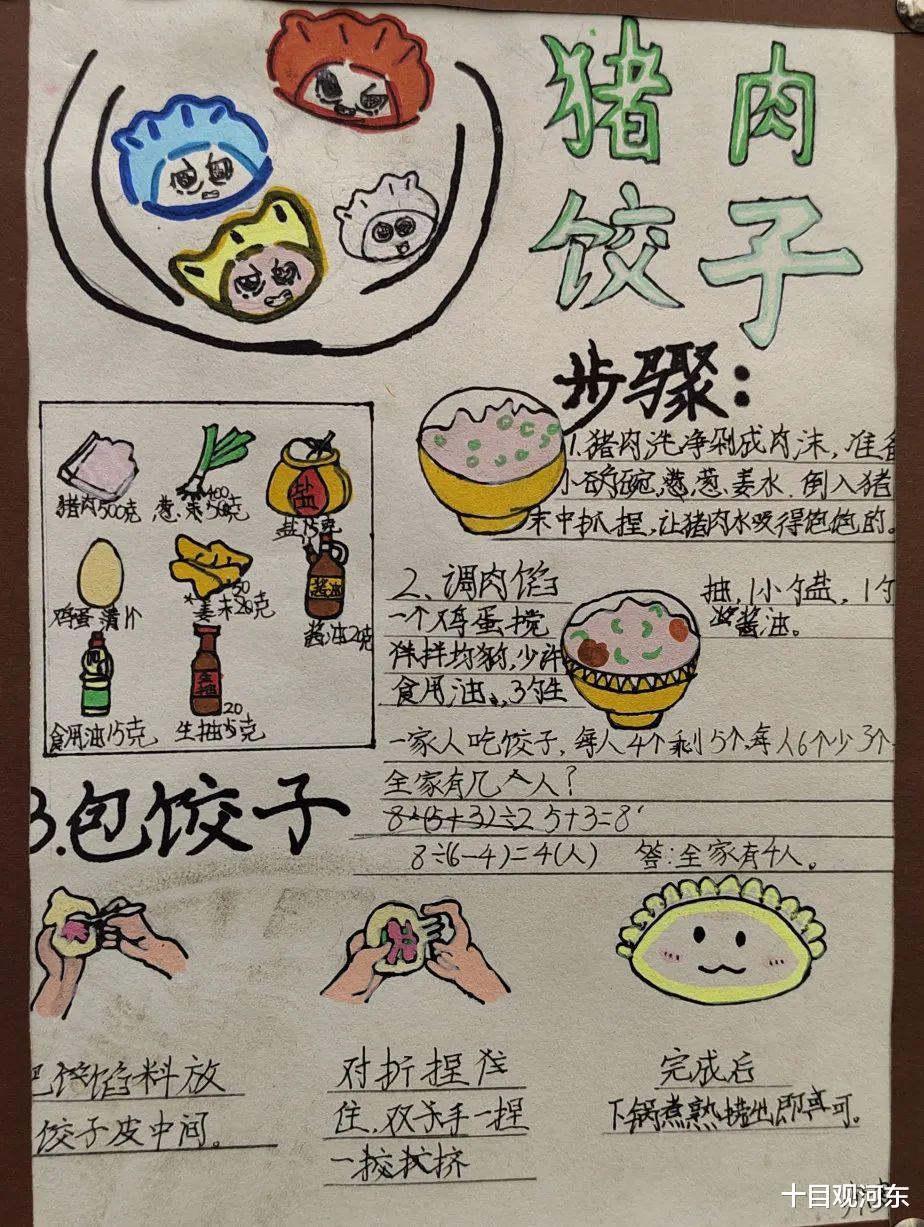 猪肉
饺子
步骤：
1.猪肉洗净剁成肉沫，准备
小碗,葱、姜水.倒入猪
末中抓捏,让猪肉水吸得饱饱的。
猪肉500克
葱.末50克
400
盐
盐15克
鸡蛋清1个
50
姜末20克
酱油
酱油20克
食用油15克
生抽
20
生抽15克
2、调肉馅
一个鸡蛋搅
拌均匀,少许
食用油,3勺生
抽,1小勺盐,1勺
酱油。
一家人吃饺子,每人4个剩5个,每人6个少3个.
全家有几人?
8-(5+3)÷2 5+3=8
8÷(6-4)=4(人) 答:全家有4人。
3.包饺子
把馅料放
饺子皮中间。
对折捏
住,双手一捏
一挤
完成后
下锅煮熟捞出即可。
十目观河东